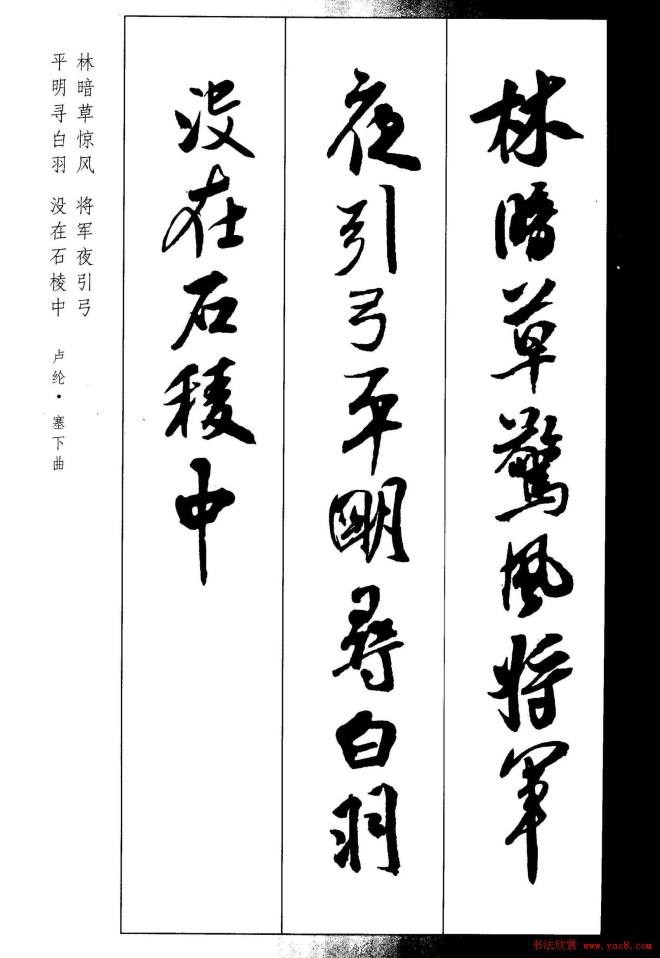 林暗草驚風将軍
夜引弓平明尋白羽
没在石稜中
林暗草惊风 将军夜引弓
平明寻白羽 没在石棱中
卢纶·塞下曲
书法欣赏 www.yac8.com